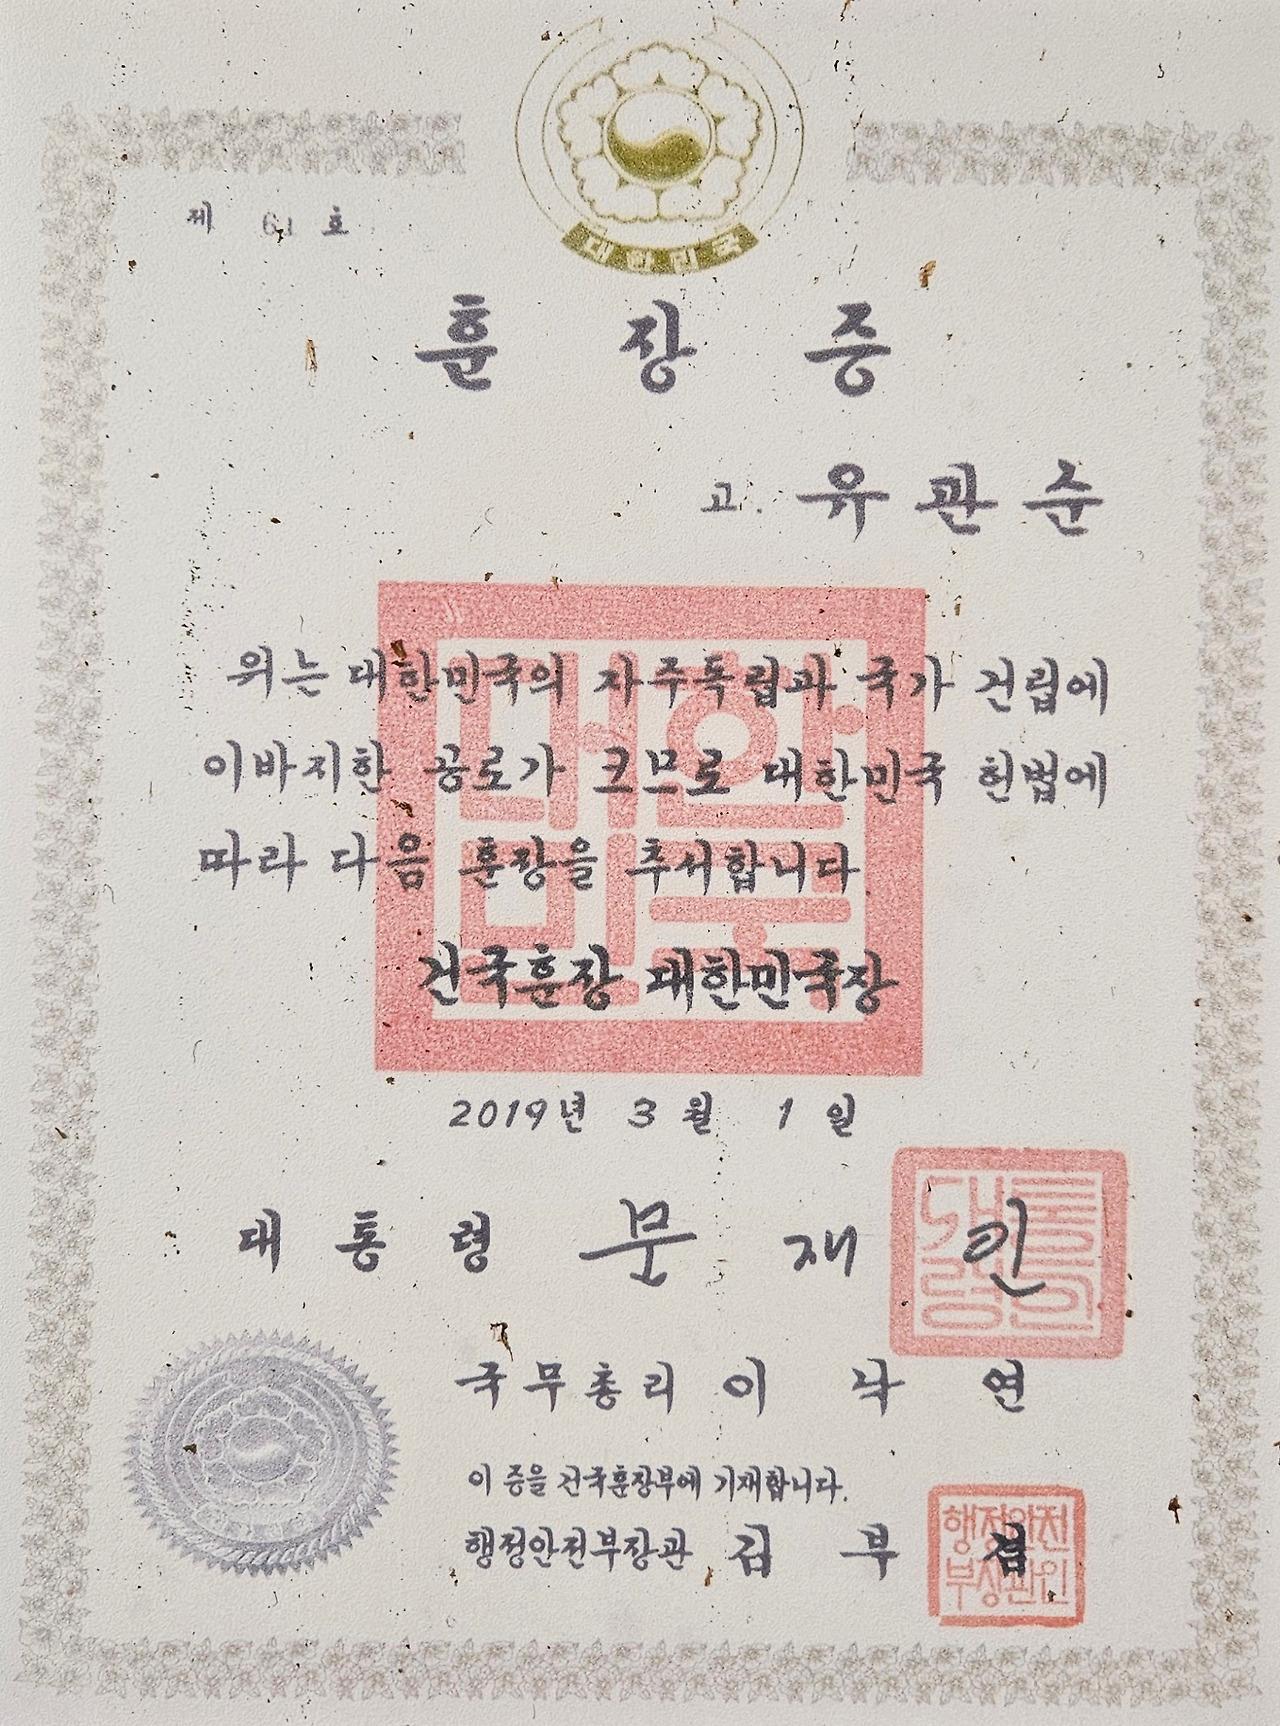 대한민국
제 61 호
훈장증
고. 유관순
위는 대한민국의 자주독립과 국가 건립에
이바지한 공로가 크므로 대한민국 헌법에
따라 다음 훈장을 추서합니다.
건국훈장 대한민국장
대한민국
2019년 3월 1일
대통령 문재인
대통령인
국무총리 이낙연
이 증을 건국훈장부에 기재합니다.
행정안전부장관 김부겸
행정안전
부장관인